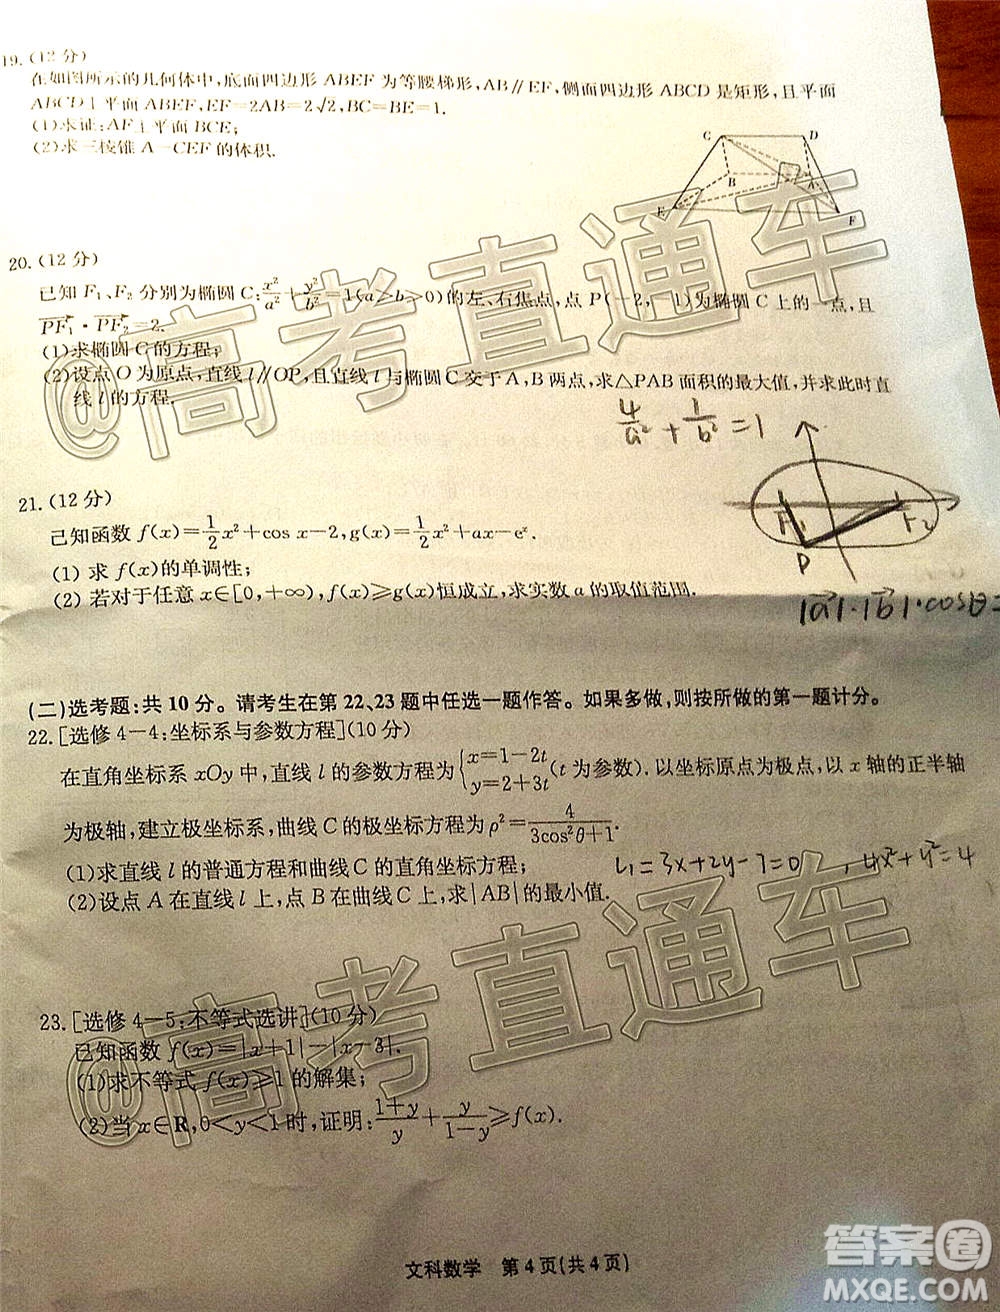 19.(12分)
在如图所示的几何体中,底面四边形 ABEF 为等腰梯形,AB∥EF,侧面四边形 ABCD 是矩形,且平面
ABCD⊥平面ABEF,EF=2AB=2√2,BC=BE=1.
(1)求证:AF⊥平面 BCE;
(2)求三棱锥 A-CEF 的体积.
C D
B A
E F
20.(12分)
已知 F₁、F₂ 分别为椭圆 C:x²/a²+y²/b²=1(a>b>0)的左、右焦点,点 P(-2,-1)为椭圆 C 上的一点,且
PF₁·PF₂=2.
(1)求椭圆 C 的方程;
(2)设点 O 为原点,直线 l∥OP,且直线 l 与椭圆 C 交于 A,B 两点,求△PAB 面积的最大值,并求此时直
线 l 的方程.
4/a²+1/b²=1
F₁ F₂
P
|a|·|b|·cosθ=
21.(12分)
己知函数 f(x)=1/2x²+cos x-2,g(x)=1/2x²+ax-eˣ.
(1) 求 f(x)的单调性;
(2) 若对于任意 x∈[0,+∞),f(x)≥g(x)恒成立,求实数 a 的取值范围.
(二)选考题:共10分。请考生在第22、23题中任选一题作答。如果多做,则按所做的第一题计分。
22.[选修4-4:坐标系与参数方程](10分)
在直角坐标系 xOy 中,直线 l 的参数方程为{x=1-2t y=2+3t(t 为参数).以坐标原点为极点,以 x 轴的正半轴
为极轴,建立极坐标系,曲线 C 的极坐标方程为 ρ²=4/(3cos²θ+1).
(1)求直线 l 的普通方程和曲线 C 的直角坐标方程;
L₁=3x+2y-7=0 ,4x²+y²=4
(2)设点 A 在直线 l 上,点 B 在曲线 C 上,求|AB|的最小值.
23.[选修4-5:不等式选讲](10分)
已知函数 f(x)=|x+1|-|x-3|.
(1)求不等式 f(x)≥1 的解集;
(2)当 x∈R,0<y<1 时,证明:(1+y)/y+y/(1-y)≥f(x).
文科数学 第4页(共4页)
@高考直通车
@高考直通车
答案圈
MXQE.COM